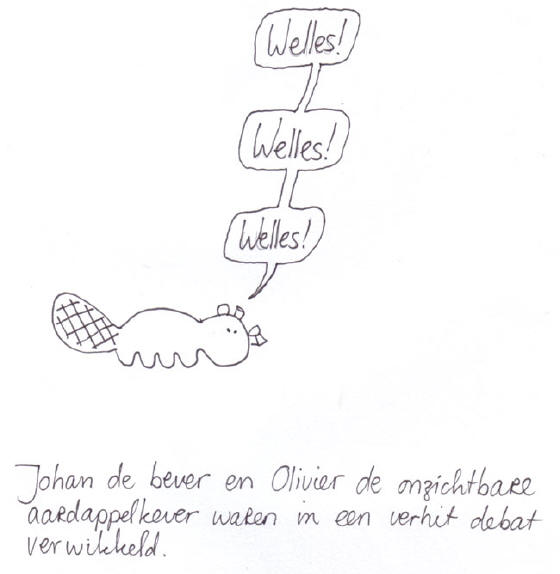 Welles!
Welles!
Welles!
Johan de bever en Olivier de onzichtbare
aardappelkever waren in een verhit debat
verwikkeld.